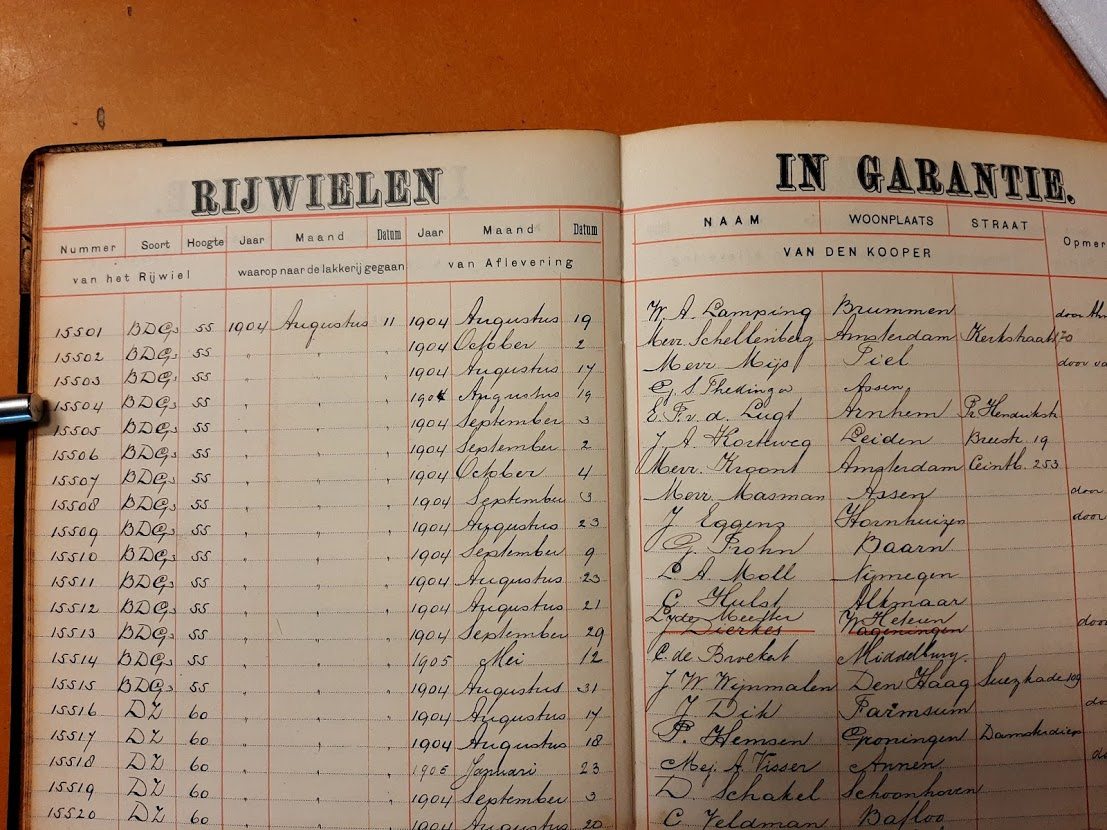 RIJWIELEN IN GARANTIE.
Nummer Soort Hoogte Jaar Maand Datum Jaar Maand Datum NAAM WOONPLAATS STRAAT Opmer
van het Rijwiel waarop naar de lakkerij gegaan van Aflevering VAN DEN KOOPER
15501 BDG 55 1904 Augustus 11 1904 Augustus 19 W. A. Lamping Brummen door
15502 BDG 55 " " " 1904 October 2 Mevr. Schellenberg Amsterdam Kerkstraat 170
15503 BDG 55 " " " 1904 Augustus 17 Mevr. Mijs Piel door va
15504 BDG 55 " " " 1904 Augustus 19 G. S. Thedinga Assen
15505 BDG 55 " " " 1904 September 3 E. P. v. d. Lugt Arnhem Pr Hendrikstr
15506 BDG 55 " " " 1904 September 2 J. A. Korteweg Leiden Breestr. 19
15507 BDG 55 " " " 1904 October 4 Mevr. Kroont Amsterdam Ceintb. 253
15508 BDG 55 " " " 1904 September 3 Mevr. Masman Assen door
15509 BDG 55 " " " 1904 Augustus 23 J. Eggens Hornhuizen door
15510 BDG 55 " " " 1904 September 9 G. Prohn Baarn
15511 BDG 55 " " " 1904 Augustus 23 L. A. Moll Nijmegen
15512 BDG 55 " " " 1904 Augustus 21 C. Hulst Alkmaar
15513 BDG 55 " " " 1904 September 29 de Meester Heteren door
J. Dierkes Wageningen
15514 BDG 55 " " " 1905 Mei 12 C. de Broekert Middelburg.
15515 BDG 55 " " " 1904 Augustus 31 J. W. Wijnmalen Den Haag Suezkade 109
15516 DZ 60 " " " 1904 Augustus 17 J. Dik Farmsum do
15517 DZ 60 " " " 1904 Augustus 18 P. Hemsen Groningen Damsterdiep
15518 DZ 60 " " " 1905 Januari 23 Mej. A. Visser Annen d
15519 DZ 60 " " " 1904 September 3 D. Schakel Schoonhoven
15520 DZ 60 " " " 1904 Augustus 20 C. Veldman Bafloo